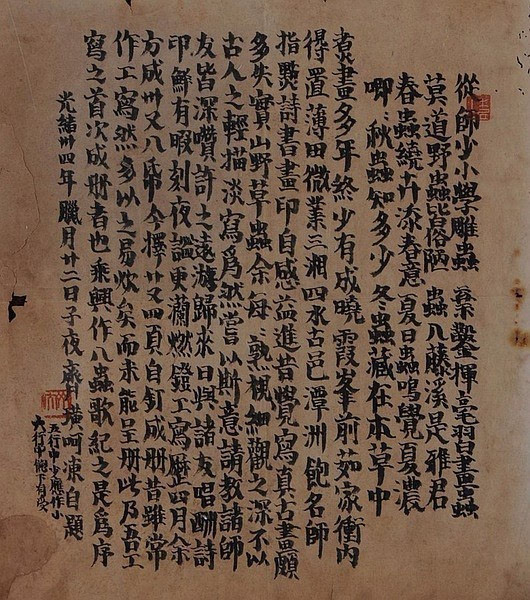 從師少小學雕蟲 棄鑿揮毫習畫蟲
莫道野蟲皆俗陋 蟲入藤溪是雅君
春蟲繞卉添春意 夏日蟲鳴覺夏濃
唧〻秋蟲知多少 冬蟲藏在本草中
煮畫多年終少有成曉霞峯前茹家衝內
得置薄田微業三湘四水古邑潭洲飽名師
指點詩書畫印自感益進昔覺寫真古畫頗
多失實山野草蟲余每〻熟視細觀之深不以
古人之輕描淡寫爲然嘗以斯意請教諸師
友皆深讚許之遠游歸來日與諸友唱酬詩
印鮮有暇刻夜謐更蘭燃鐙工寫歷四月余
方成卅又八帋今擇廿又四頁自釘成册昔雖常
作工寫然多以之易炊矣而未能呈册此乃吾工
寫之首次成册者也乘興作八蟲歌紀之是爲序
光緒卅四年臘月廿二日子夜齊璜呵凍自題
五行中少應作小
六行中飽下有受